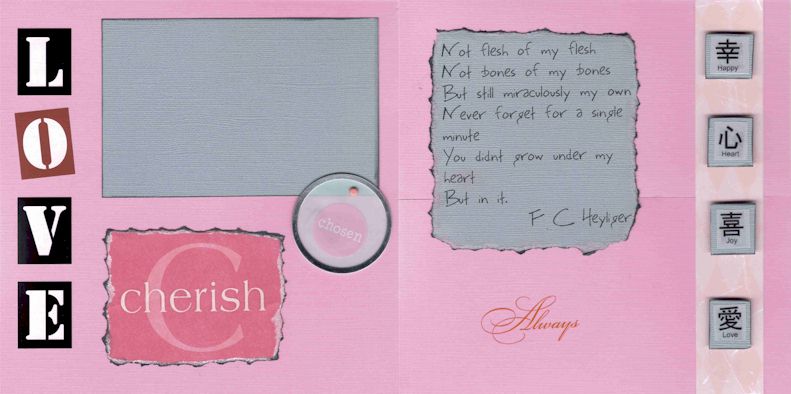 L
O
V
E
chosen
C
cherish
Not flesh of my flesh
Not bones of my bones
But still miraculously my own
Never forget for a single
minute
You didnt grow under my
heart
But in it.
F C Heyliger
Always
幸
Happy
心
Heart
喜
Joy
愛
Love